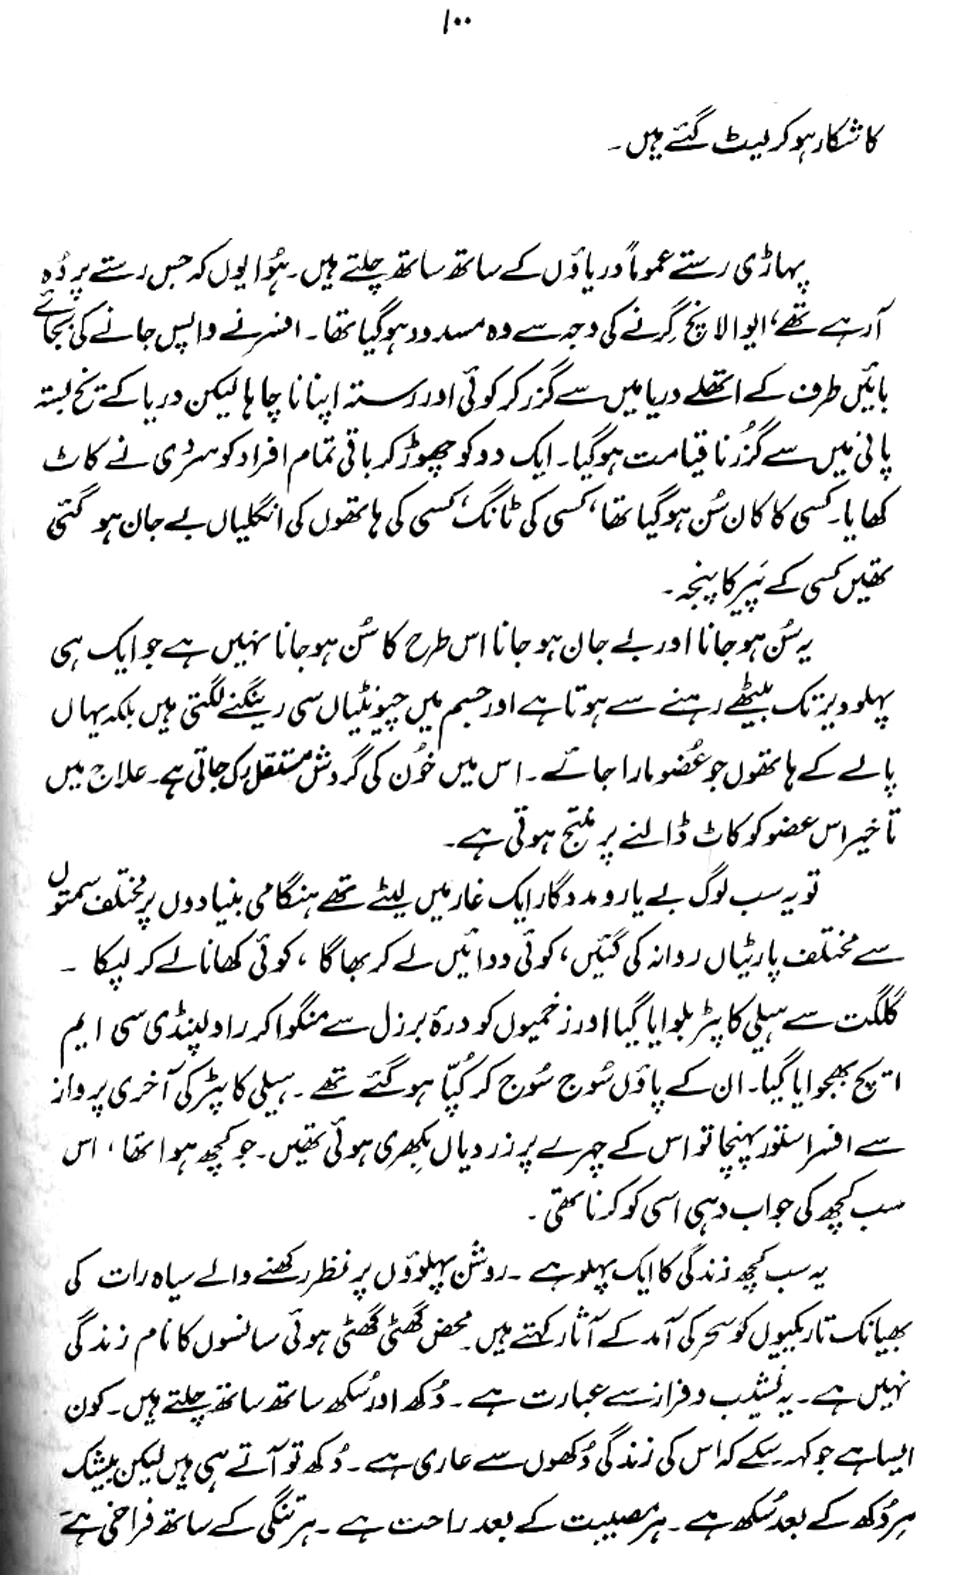 ۱۰۰
کا شکار ہو کر لیٹ گئے ہیں۔
پہاڑی رستے عموماً دریاؤں کے ساتھ ساتھ چلتے ہیں۔ ہُوا یوں کہ جس رستے پر وُہ
آرہے تھے، ایوالانچ گِرنے کی وجہ سے وہ مسدود ہو گیا تھا۔ افسر نے واپس جانے کی بجائے
بائیں طرف کے اتھلے دریا میں سے گزر کر کوئی اور رستہ اپنانا چاہا لیکن دریا کے یخ بستہ
پانی میں سے گُزرنا قیامت ہو گیا۔ ایک دو کو چھوڑ کر باقی تمام افراد کو سردی نے کاٹ
کھایا۔ کسی کا کان سُن ہو گیا تھا، کسی کی ٹانگ، کسی کی ہاتھوں کی انگلیاں بے جان ہو گئی
تھیں کسی کے پَیر کا پنجہ۔
یہ سُن ہو جانا اور بے جان ہو جانا اس طرح کا سُن ہو جانا نہیں ہے جو ایک ہی
پہلو دیر تک بیٹھے رہنے سے ہوتا ہے اور جسم میں چیونٹیاں سی رینگنے لگتی ہیں بلکہ یہاں
پالے کے ہاتھوں جو عُضو مارا جائے۔ اس میں خُون کی گردش مستقل رک جاتی ہے۔ علاج میں
تاخیر اس عضو کو کاٹ ڈالنے پر منتج ہوتی ہے۔
تو یہ سب لوگ بے یارو مددگار ایک غار میں لیٹے تھے ہنگامی بنیادوں پر مختلف سمتوں
سے مختلف پارٹیاں روانہ کی گئیں، کوئی دوائیں لے کر بھاگا، کوئی کھانا لے کر لپکا ۔
گلگت سے ہیلی کاپٹر بلوایا گیا اور زخمیوں کو درۂ برزل سے منگوا کر راولپنڈی سی ایم
ایچ بھجوایا گیا۔ ان کے پاؤں سُوج سُوج کر کُپّا ہو گئے تھے ۔ ہیلی کاپٹر کی آخری پرواز
سے افسر استور پہنچا تو اس کے چہرے پر زردیاں بکھری ہوئی تھیں۔ جو کچھ ہوا تھا، اس
سب کچھ کی جواب دہی اسی کو کرنا تھی ۔
یہ سب کچھ زندگی کا ایک پہلو ہے ۔ روشن پہلوؤں پر نظر رکھنے والے سیاہ رات کی
بھیانک تاریکیوں کو سحر کی آمد کے آثار کہتے ہیں۔ محض گھٹی گھٹی ہوئی سانسوں کا نام زندگی
نہیں ہے ۔ یہ نشیب و فراز سے عبارت ہے ۔ دُکھ اور سُکھ ساتھ ساتھ چلتے ہیں۔ کون
ایسا ہے جو کہہ سکے کہ اس کی زندگی دُکھوں سے عاری ہے ۔ دُکھ تو آتے ہی ہیں لیکن بیشک
ہر دُکھ کے بعد سُکھ ہے ۔ ہر مصیبت کے بعد راحت ہے ۔ ہر تنگی کے ساتھ فراخی ہے